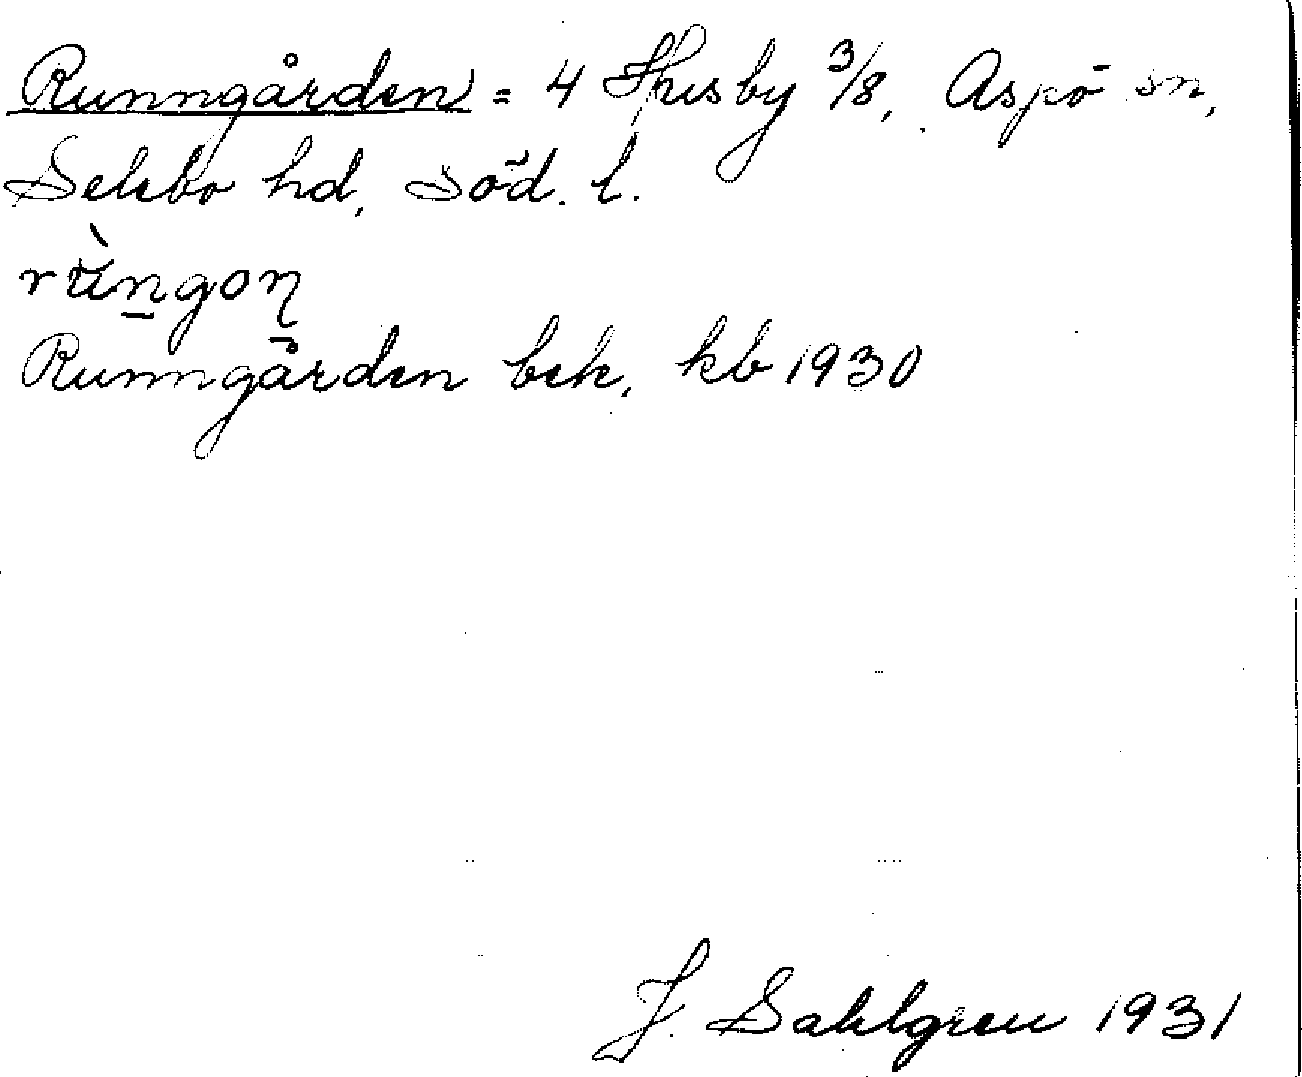 Runngården = 4 Husby 3/8, Aspö sn,
Selebo hd, Söd. l.
rùngoɳ
Runngården bek, kb 1930
J. Sahlgren 1931